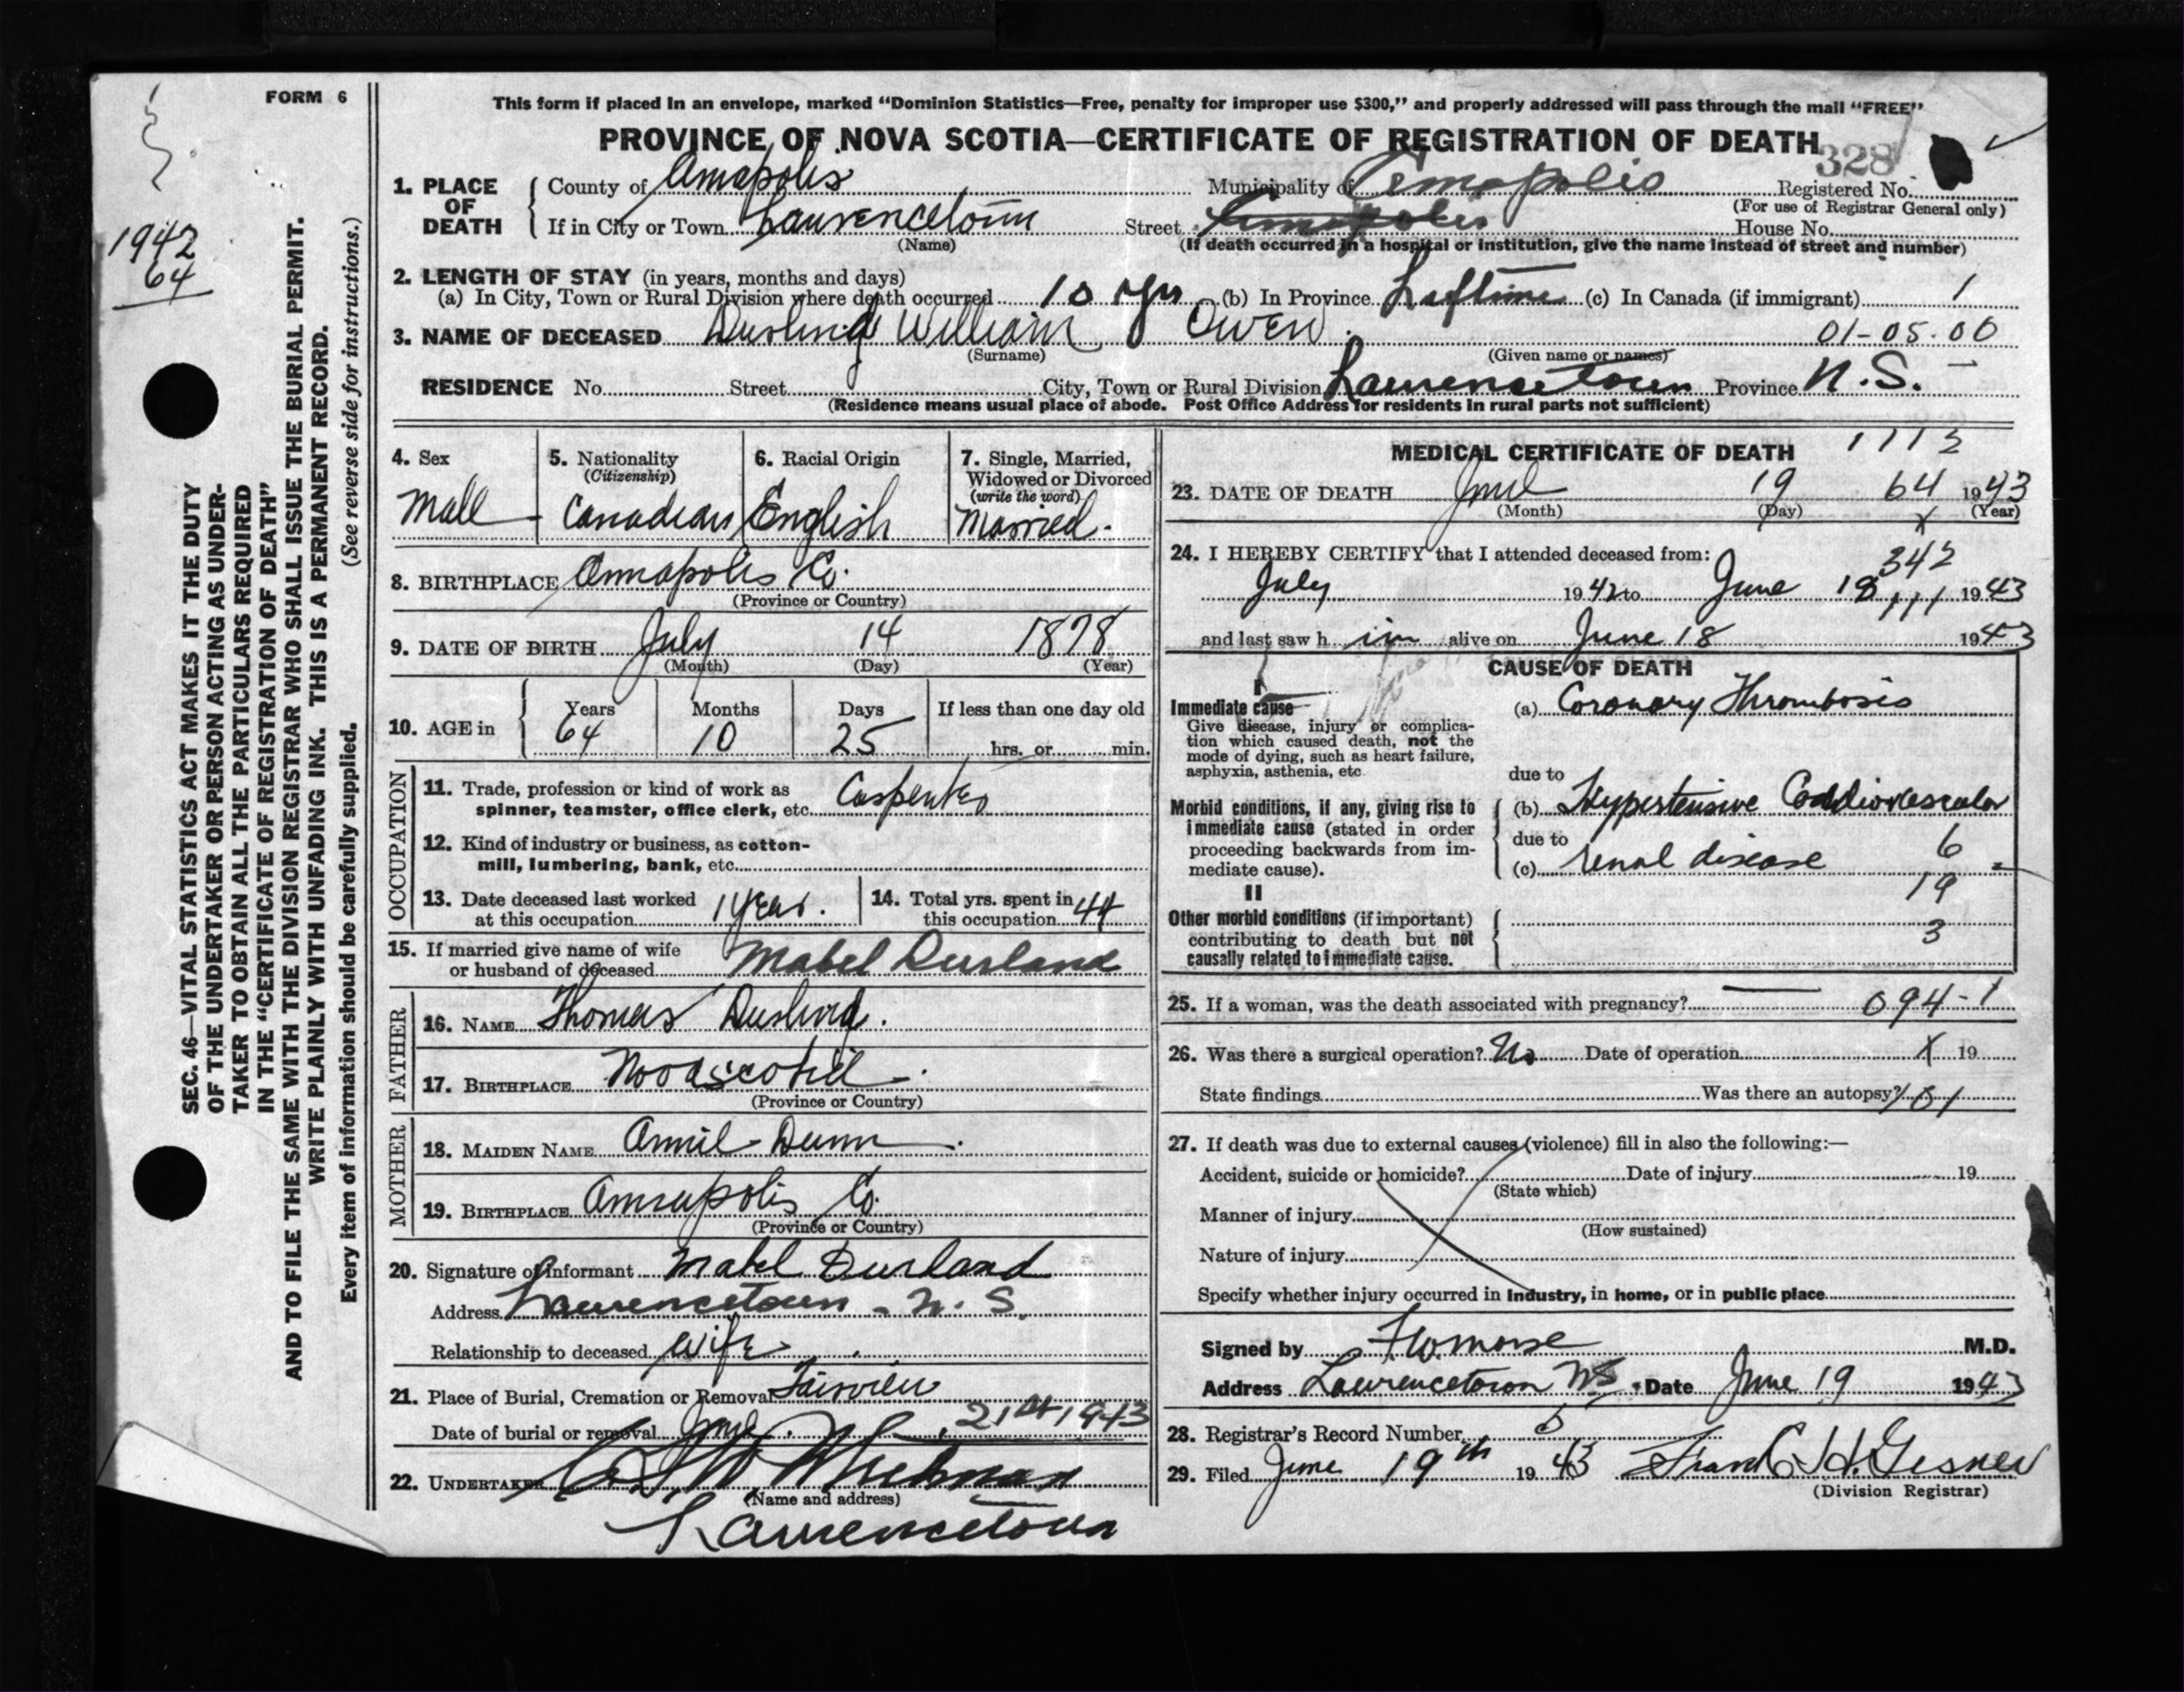 FORM 6
This form if placed in an envelope, marked "Dominion Statistics—Free, penalty for improper use $300," and properly addressed will pass through the mail "FREE"
PROVINCE OF NOVA SCOTIA—CERTIFICATE OF REGISTRATION OF DEATH
328
1. PLACE OF DEATH
County of Annapolis Municipality of Annapolis Registered No.
(For use of Registrar General only)
If in City or Town Lawrencetown Street Annapolis House No.
(Name) (If death occurred in a hospital or institution, give the name instead of street and number)
2. LENGTH OF STAY (in years, months and days)
(a) In City, Town or Rural Division where death occurred 10 yrs (b) In Province Liftime (c) In Canada (if immigrant) 1
3. NAME OF DECEASED Durling William Owen
01-05-00
(Surname) (Given name or names)
RESIDENCE No. Street City, Town or Rural Division Lawrencetown Province N.S.
(Residence means usual place of abode. Post Office Address for residents in rural parts not sufficient)
1942
64
SEC. 46—VITAL STATISTICS ACT MAKES IT THE DUTY
OF THE UNDERTAKER OR PERSON ACTING AS UNDER-
TAKER TO OBTAIN ALL THE PARTICULARS REQUIRED
IN THE "CERTIFICATE OF REGISTRATION OF DEATH"
AND TO FILE THE SAME WITH THE DIVISION REGISTRAR WHO SHALL ISSUE THE BURIAL PERMIT.
WRITE PLAINLY WITH UNFADING INK. THIS IS A PERMANENT RECORD.
Every item of information should be carefully supplied. (See reverse side for instructions.)
4. Sex
Male
5. Nationality
(Citizenship)
Canadian
6. Racial Origin
English
7. Single, Married,
Widowed or Divorced
(write the word)
Married.
8. BIRTHPLACE Annapolis Co.
(Province or Country)
9. DATE OF BIRTH July 14 1878
(Month) (Day) (Year)
10. AGE in
Years Months Days If less than one day old
64 10 25 hrs. or min.
OCCUPATION
11. Trade, profession or kind of work as
spinner, teamster, office clerk, etc. Carpenter
12. Kind of industry or business, as cotton-
mill, lumbering, bank, etc.
13. Date deceased last worked
at this occupation 1 year.
14. Total yrs. spent in
this occupation 44
15. If married give name of wife
or husband of deceased Mabel Durland
FATHER
16. NAME Thomas Durling.
17. BIRTHPLACE
(Province or Country)
MOTHER
18. MAIDEN NAME Annie Dunn
19. BIRTHPLACE Annapolis Co.
(Province or Country)
20. Signature of informant Mabel Durland
Address Lawrencetown - N.S.
Relationship to deceased wife
21. Place of Burial, Cremation or Removal Fairview
Date of burial or removal June 21st 1943
22. UNDERTAKER
(Name and address)
Lawrencetown
MEDICAL CERTIFICATE OF DEATH
23. DATE OF DEATH June 19 64 1943
(Month) (Day) (Year)
24. I HEREBY CERTIFY that I attended deceased from:
342
July 1942 to June 18 1943
and last saw him alive on June 18 1943
CAUSE OF DEATH
I
Immediate cause
Give disease, injury or complica-
tion which caused death, not the
mode of dying, such as heart failure,
asphyxia, asthenia, etc.
(a) Coronary Thrombosis
due to
Morbid conditions, if any, giving rise to
immediate cause (stated in order
proceeding backwards from im-
mediate cause).
(b) Hypertensive Cardiovascular
due to
(c) renal disease
6
19
3
II
Other morbid conditions (if important)
contributing to death but not
causally related to immediate cause.
25. If a woman, was the death associated with pregnancy? 094-1
26. Was there a surgical operation? No Date of operation X 19
State findings Was there an autopsy?
27. If death was due to external causes (violence) fill in also the following:—
Accident, suicide or homicide? Date of injury 19
(State which)
Manner of injury
(How sustained)
Nature of injury
Specify whether injury occurred in industry, in home, or in public place
Signed by F.W. Morse M.D.
Address Lawrencetown NS Date June 19 1943
28. Registrar's Record Number
29. Filed June 19th 1943 Frank H. Gesner
(Division Registrar)